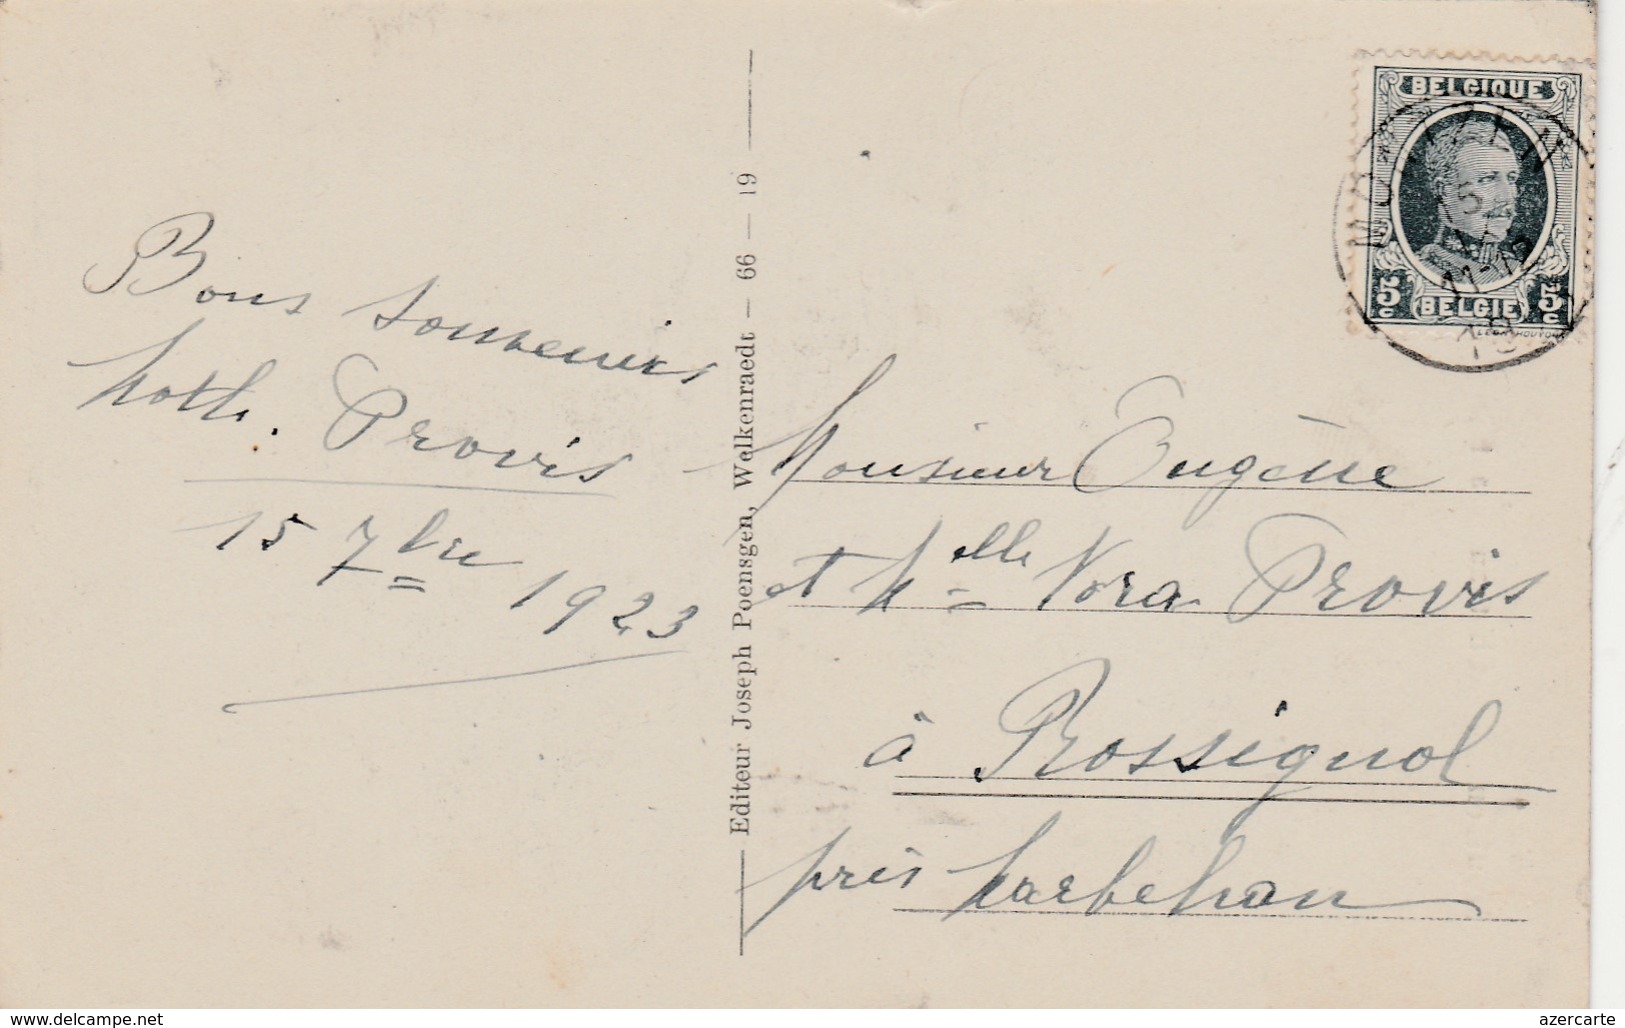 Bons souvenirs
Provis
15 7bre 1923
Editeur Joseph Poensgen, Welkenraedt — 66 — 19
BELGIQUE
5c
BELGIE
5c
11-12
Monsieur Eugène
et Melle Nora Provis
à Rossignol
près Marbehan
www.delcampe.net
azercarte